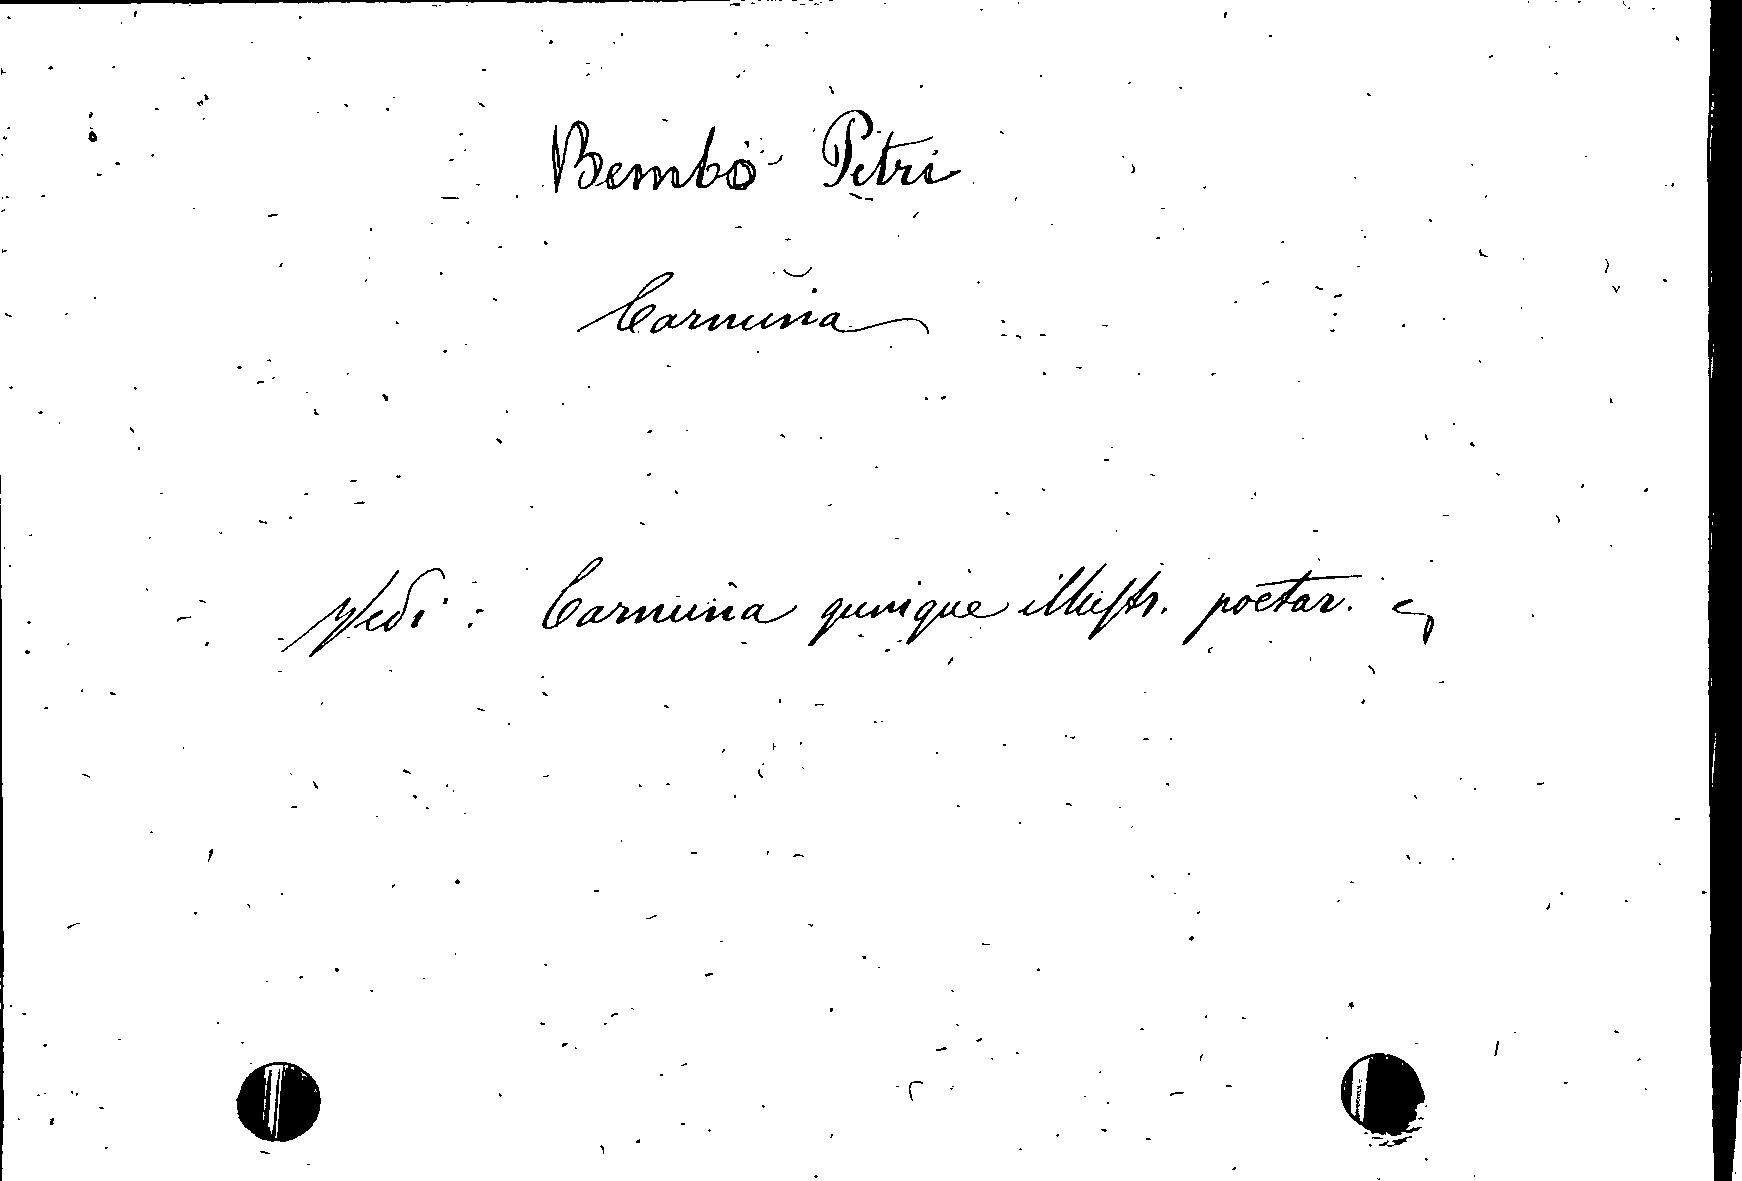 Bembo Petri
Carmina
Vedi: Carmina quinque illustr. poetar.